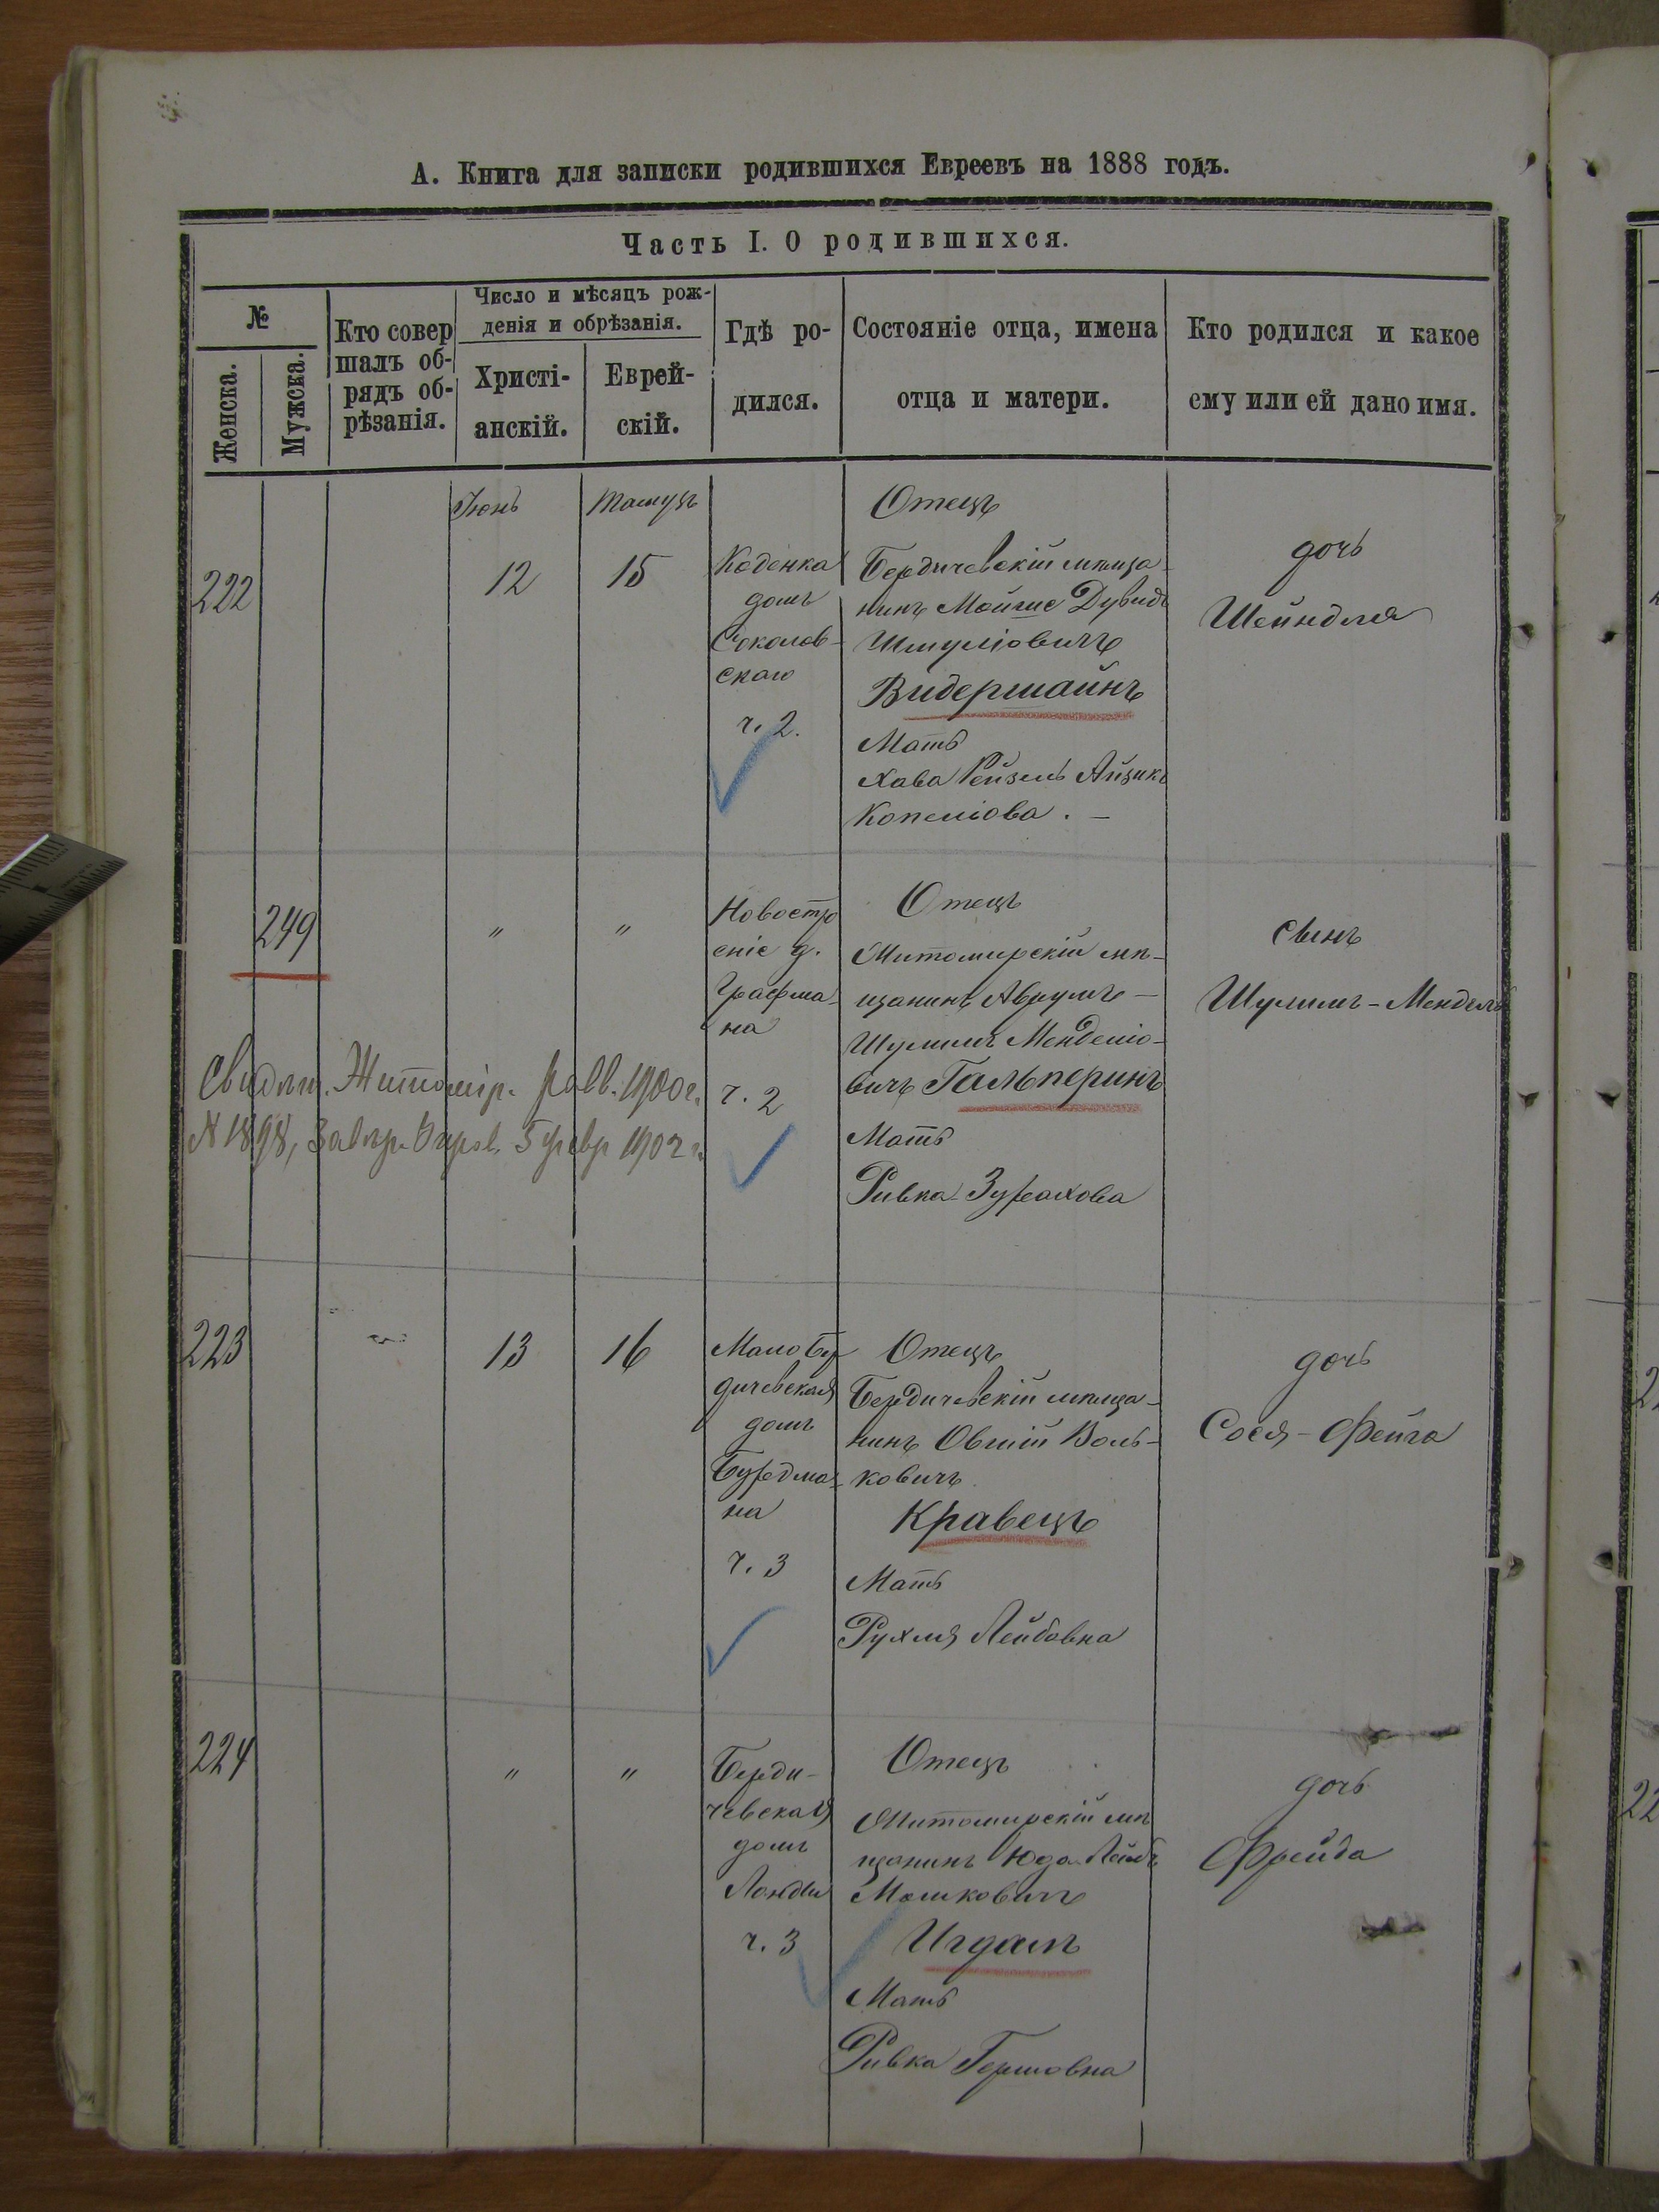 А. Книга для записки родившихся Евреевъ на 1888 годъ.
Часть I. О родившихся.
№
Женска.
Мужска.
Кто совер
шалъ об-
рядъ об-
рѣзанія.
Число и мѣсяцъ рож-
денія и обрѣзанія.
Христі-
анскій.
Еврей-
скій.
Гдѣ ро-
дился.
Состояніе отца, имена
отца и матери.
Кто родился и какое
ему или ей дано имя.
Іюнь
Тамузъ
222
12
15
Коденка
домъ
Соколов-
скаго
ч. 2.
Отецъ
Бердичевскій мѣща-
нинъ Мойше Дувидъ
Шмуліовичъ
Видершайнъ
Мать
Хава Рейзель Айзикъ
Копеліова. —
дочь
Шейндля
249
"
"
Новостро
еніе д.
Графма-
на
ч. 2
Отецъ
Житомирскій мѣ-
щанинъ Аврумъ —
Шулимъ Менделіо-
вичъ Гальперинъ
Мать
Ривка Зурахова
сынъ
Шулимъ - Мендель
Свидѣт. Житомір. равв. 1900 г.
N 1898, 5 февр 1902 г.
223
13
16
Мало Бер
дичевская
домъ
Бурдма-
на
ч. 3
Отецъ
Бердичевскій мѣща-
нинъ Овшій Воль-
ковичъ
Кравецъ
Мать
Рухля Лейбовна
дочь
Сося - Фейга
224
"
"
Берди-
чевская
домъ
Ланды
ч. 3
Отецъ
Житомирскій мѣ
щанинъ Юда-Лейбъ
Мошковичъ
Игдалъ
Мать
Ривка Гершовна
дочь
Фрейда